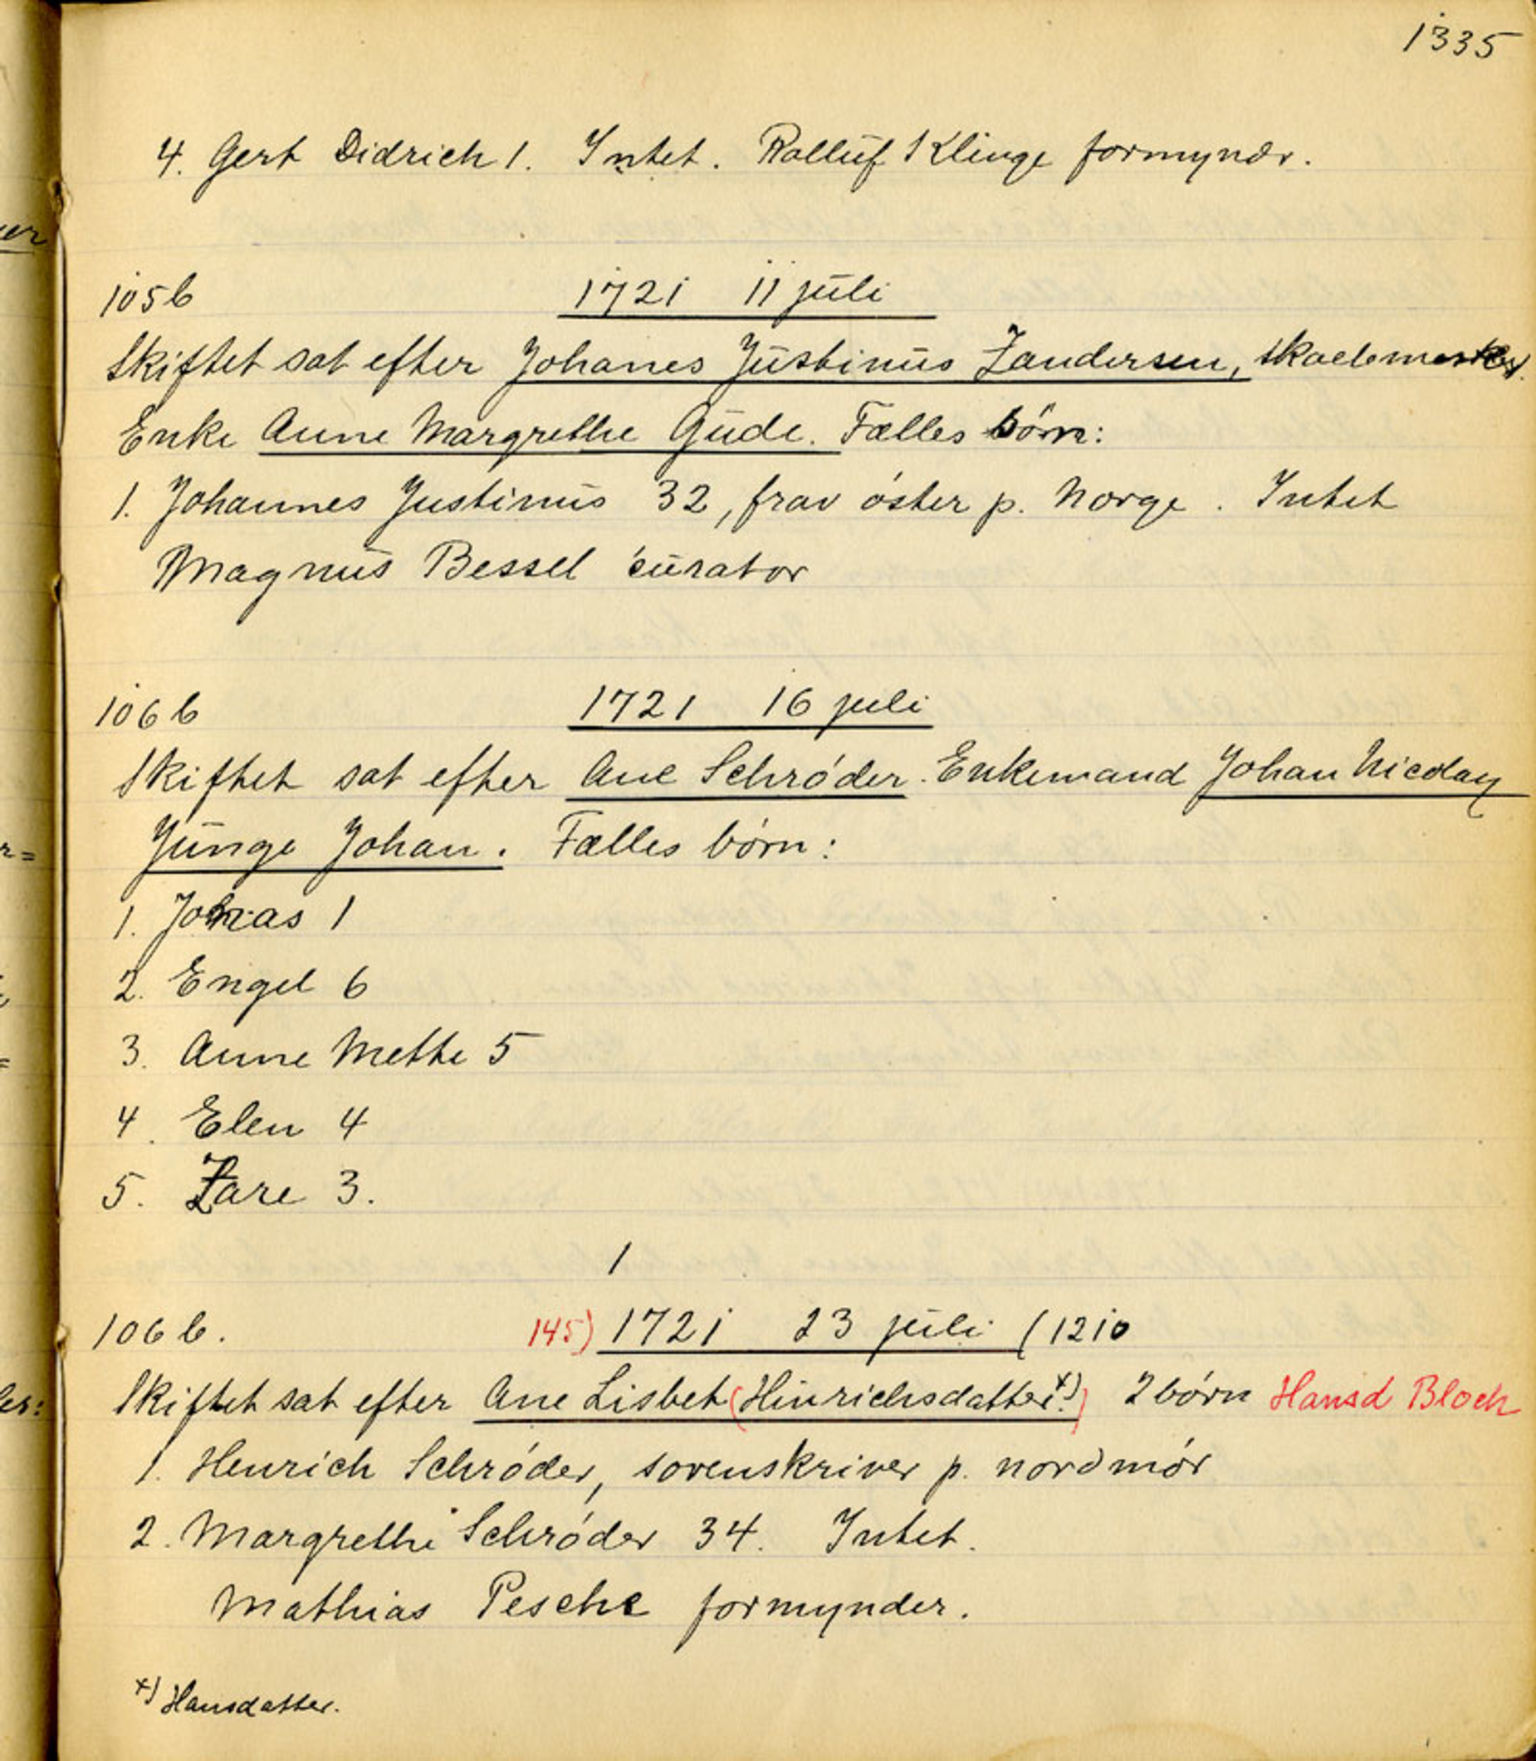 1335
4. Gert Didrich 1. Intet. Rolluf Klinge formyndr.
105b
1721 11 juli
Skiftet sat efter Johanes Justinus Zandersen, skoelemester.
Enke Anne Margrethe Gude. Fælles børn:
1. Johannes Justinus 32, frav øster p. Norge. Intet
Magnus Bessel curator
106b
1721 16 juli
Skiftet sat efter Ane Schrøder. Enkemand Johan Nicolay
Junge Johan. Fælles børn:
1. Jonas 1
2. Engel 6
3. Anne Mette 5
4. Elen 4
5. Zare 3.
1
106b.
145) 1721 23 juli (1210
Skiftet sat efter Ane Lisbet (Hinrichsdatter! x)) 2 børn Hansd Bloch
1. Henrich Schrøder, sorenskriver p. nordmør
2. Margrethe Schrøder 34. Intet.
Mathias Pesche formynder.
x) Hansdatter.